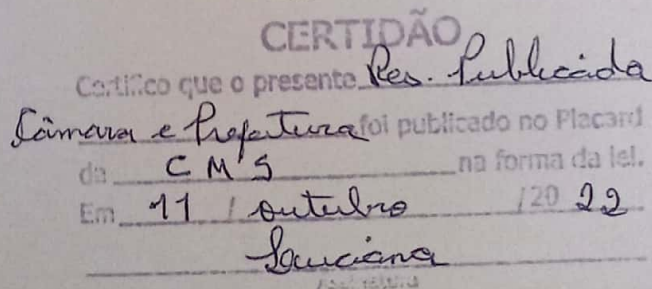 CERTIDÃO
Certifico que o presente Res. Publicada
Câmara e Prefeitura foi publicado no Placard
da C M S na forma da lei.
Em 11 / outubro /20 22
Luciana
Assinatura